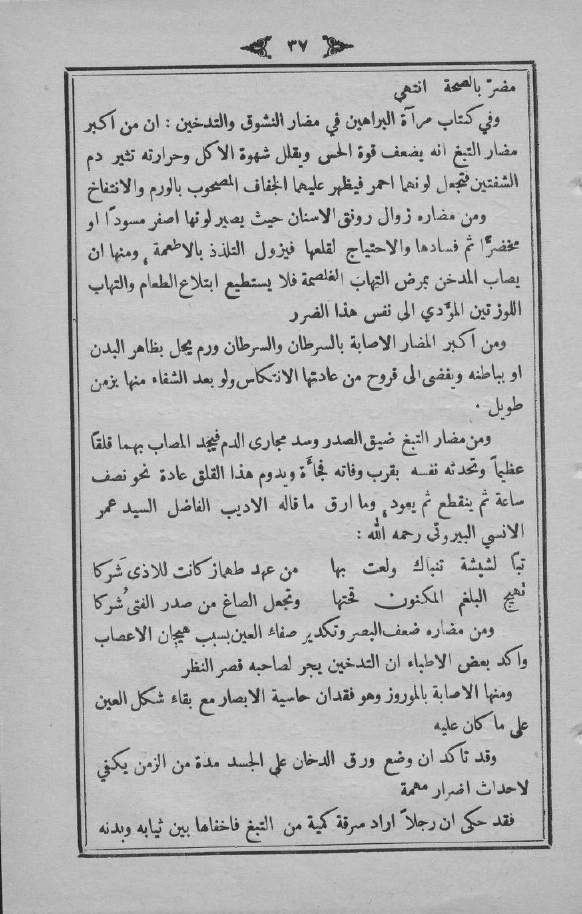 ٣٧
مضرّ بالصحة انتهي
وفي كتاب مرآة البراهين في مضار النشوق والتدخين : ان من اكبر
مضار التبغ انه يضعف قوة الحس ويقلل شهوة الاكل وحرارته تثير دم
الشفتين فتجعل لونهما احمر فيظهر عليهما الجفاف المصحوب بالورم والانتفاخ
ومن مضاره زوال رونق الاسنان حيث يصير لونها اصفر مسودًا او
مخضرًا ثم فسادها والاحتياج لقلعها فيزول التلذذ بالاطعمة ومنها ان
يصاب المدخن بمرض التهاب الغلصمة فلا يستطيع ابتلاع الطعام والتهاب
اللوزتين المؤدي الى نفس هذا الضرر
ومن اكبر المضار الاصابة بالسرطان والسرطان ورم يحل بظاهر البدن
او بباطنه ويفضى الى قروح من عادتها الانتكاس ولو بعد الشفاء منها بزمن
طويل ·
ومن مضار التبغ ضيق الصدر وسد مجارى الدم فيجد المصاب بهما قلقًا
عظيمًا وتحدثه نفسه بقرب وفاته فجأة ويدوم هذا القلق عادة نحو نصف
ساعة ثم ينقطع ثم يعود وما ارق ما قاله الاديب الفاضل السيد عمر
الانسي البيروتي رحمه الله :
تبًا لشيشة تنباك ولعت بها من عهد طهماز كانت للاذى شَركا
تهيج البلغم المكنون قحتها وتجعل الصاغ من صدر الفتى شُركا
ومن مضاره ضعف البصر وتكدير صفاء العين بسبب هيجان الاعصاب
واكد بعض الاطباء ان التدخين يجر لصاحبه قصر النظر
ومنها الاصابة بالموروز وهو فقدان حاسية الابصار مع بقاء شكل العين
على ما كان عليه
وقد تأكد ان وضع ورق الدخان على الجسد مدة من الزمن يكفي
لاحداث اضرار مهمة
فقد حكى ان رجلاً اراد سرقة كمية من التبغ فاخفاها بين ثيابه وبدنه